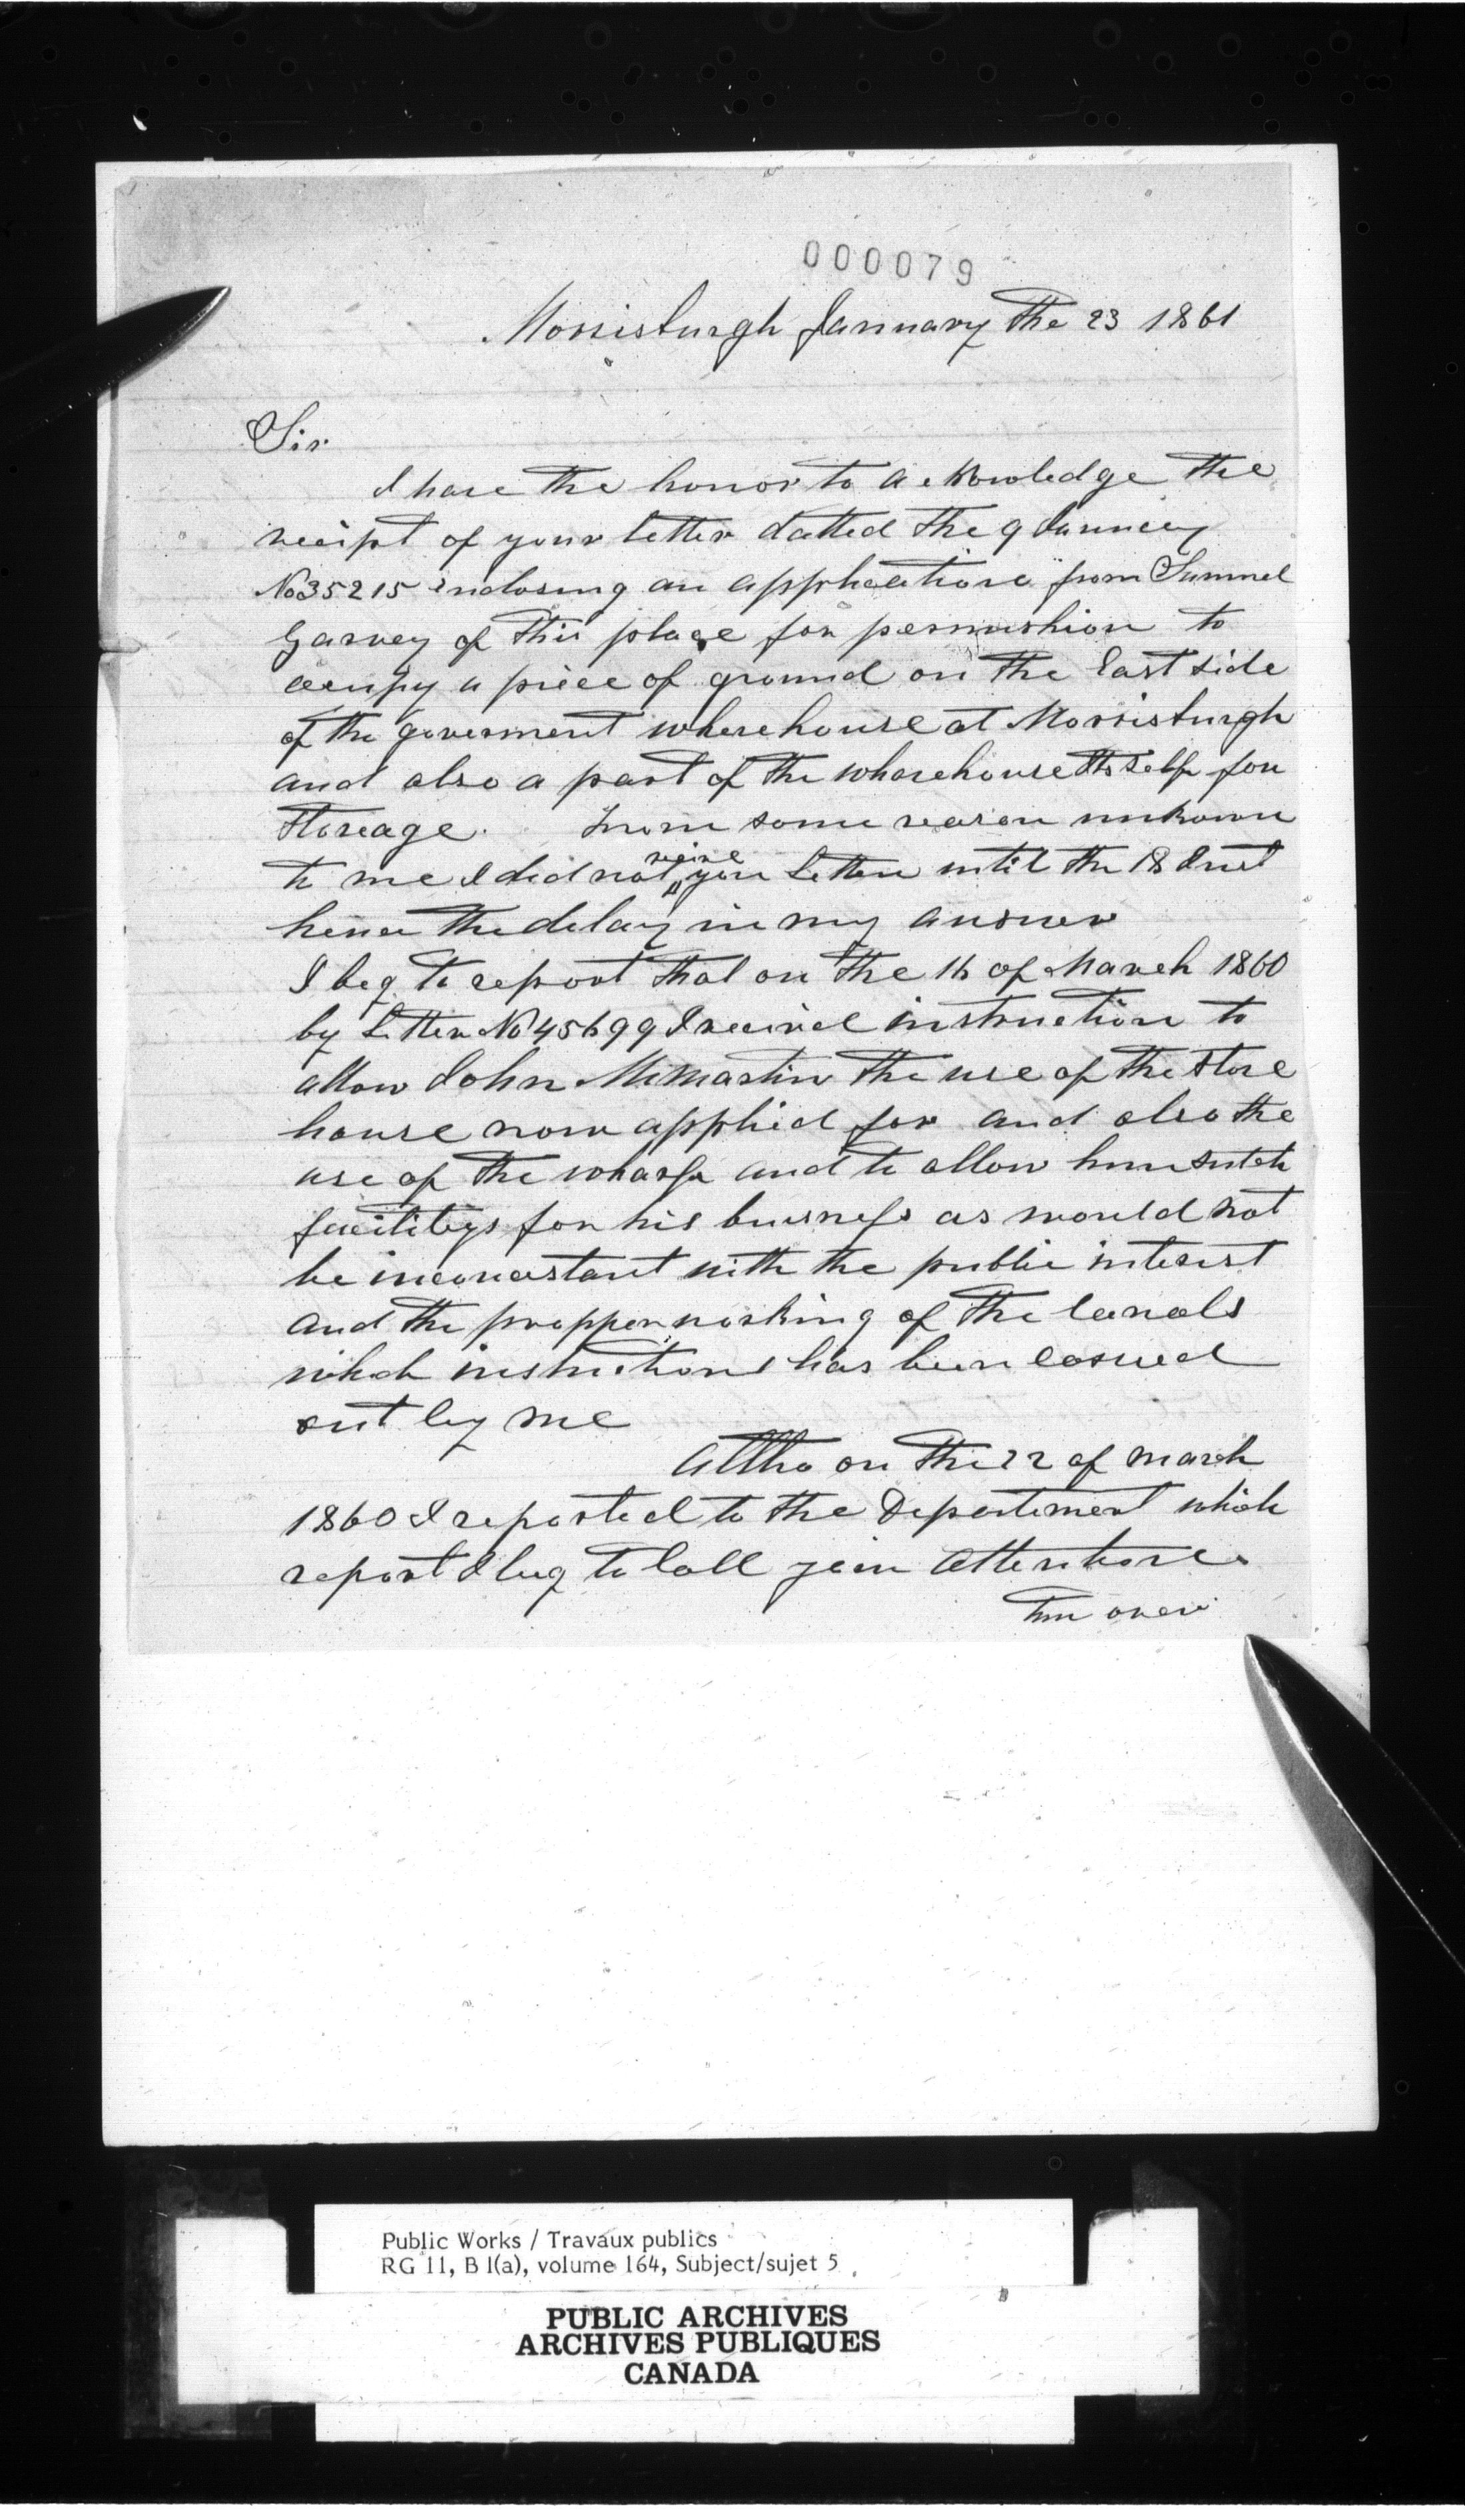 000079
Morrisburgh January the 23 1861
Sir
I have the honor to acknowledge the
reciept of your letter datted the 9 January
No 35215 inclosing an application from Sumnel
Garvey of this place for permishion to
occupy a piece of ground on the East side
of the goverment wherehouse at Morrisburgh
and also a part of the wharehouse itself for
Storeage. From some reason unknown
to me I did not recive your Letter until the 18 Inst
hence the delay in my answer
I beg to report that on the 16 of March 1860
by Letter No 45699 I recived instruction to
allow John McMartin the use of the Store
house now applied for and also the
use of the wharfe and to allow him sutch
facilitiys for his buisness as would not
be inconcistant with the public interest
and the propper working of the Canals
which instructions has been carried
out by me
Altho on the 22 of March
1860 I reported to the Department which
report I beg to Call your Attention
turn over
Public Works / Travaux publics
RG 11, B 1(a), volume 164, Subject/sujet 5
PUBLIC ARCHIVES
ARCHIVES PUBLIQUES
CANADA